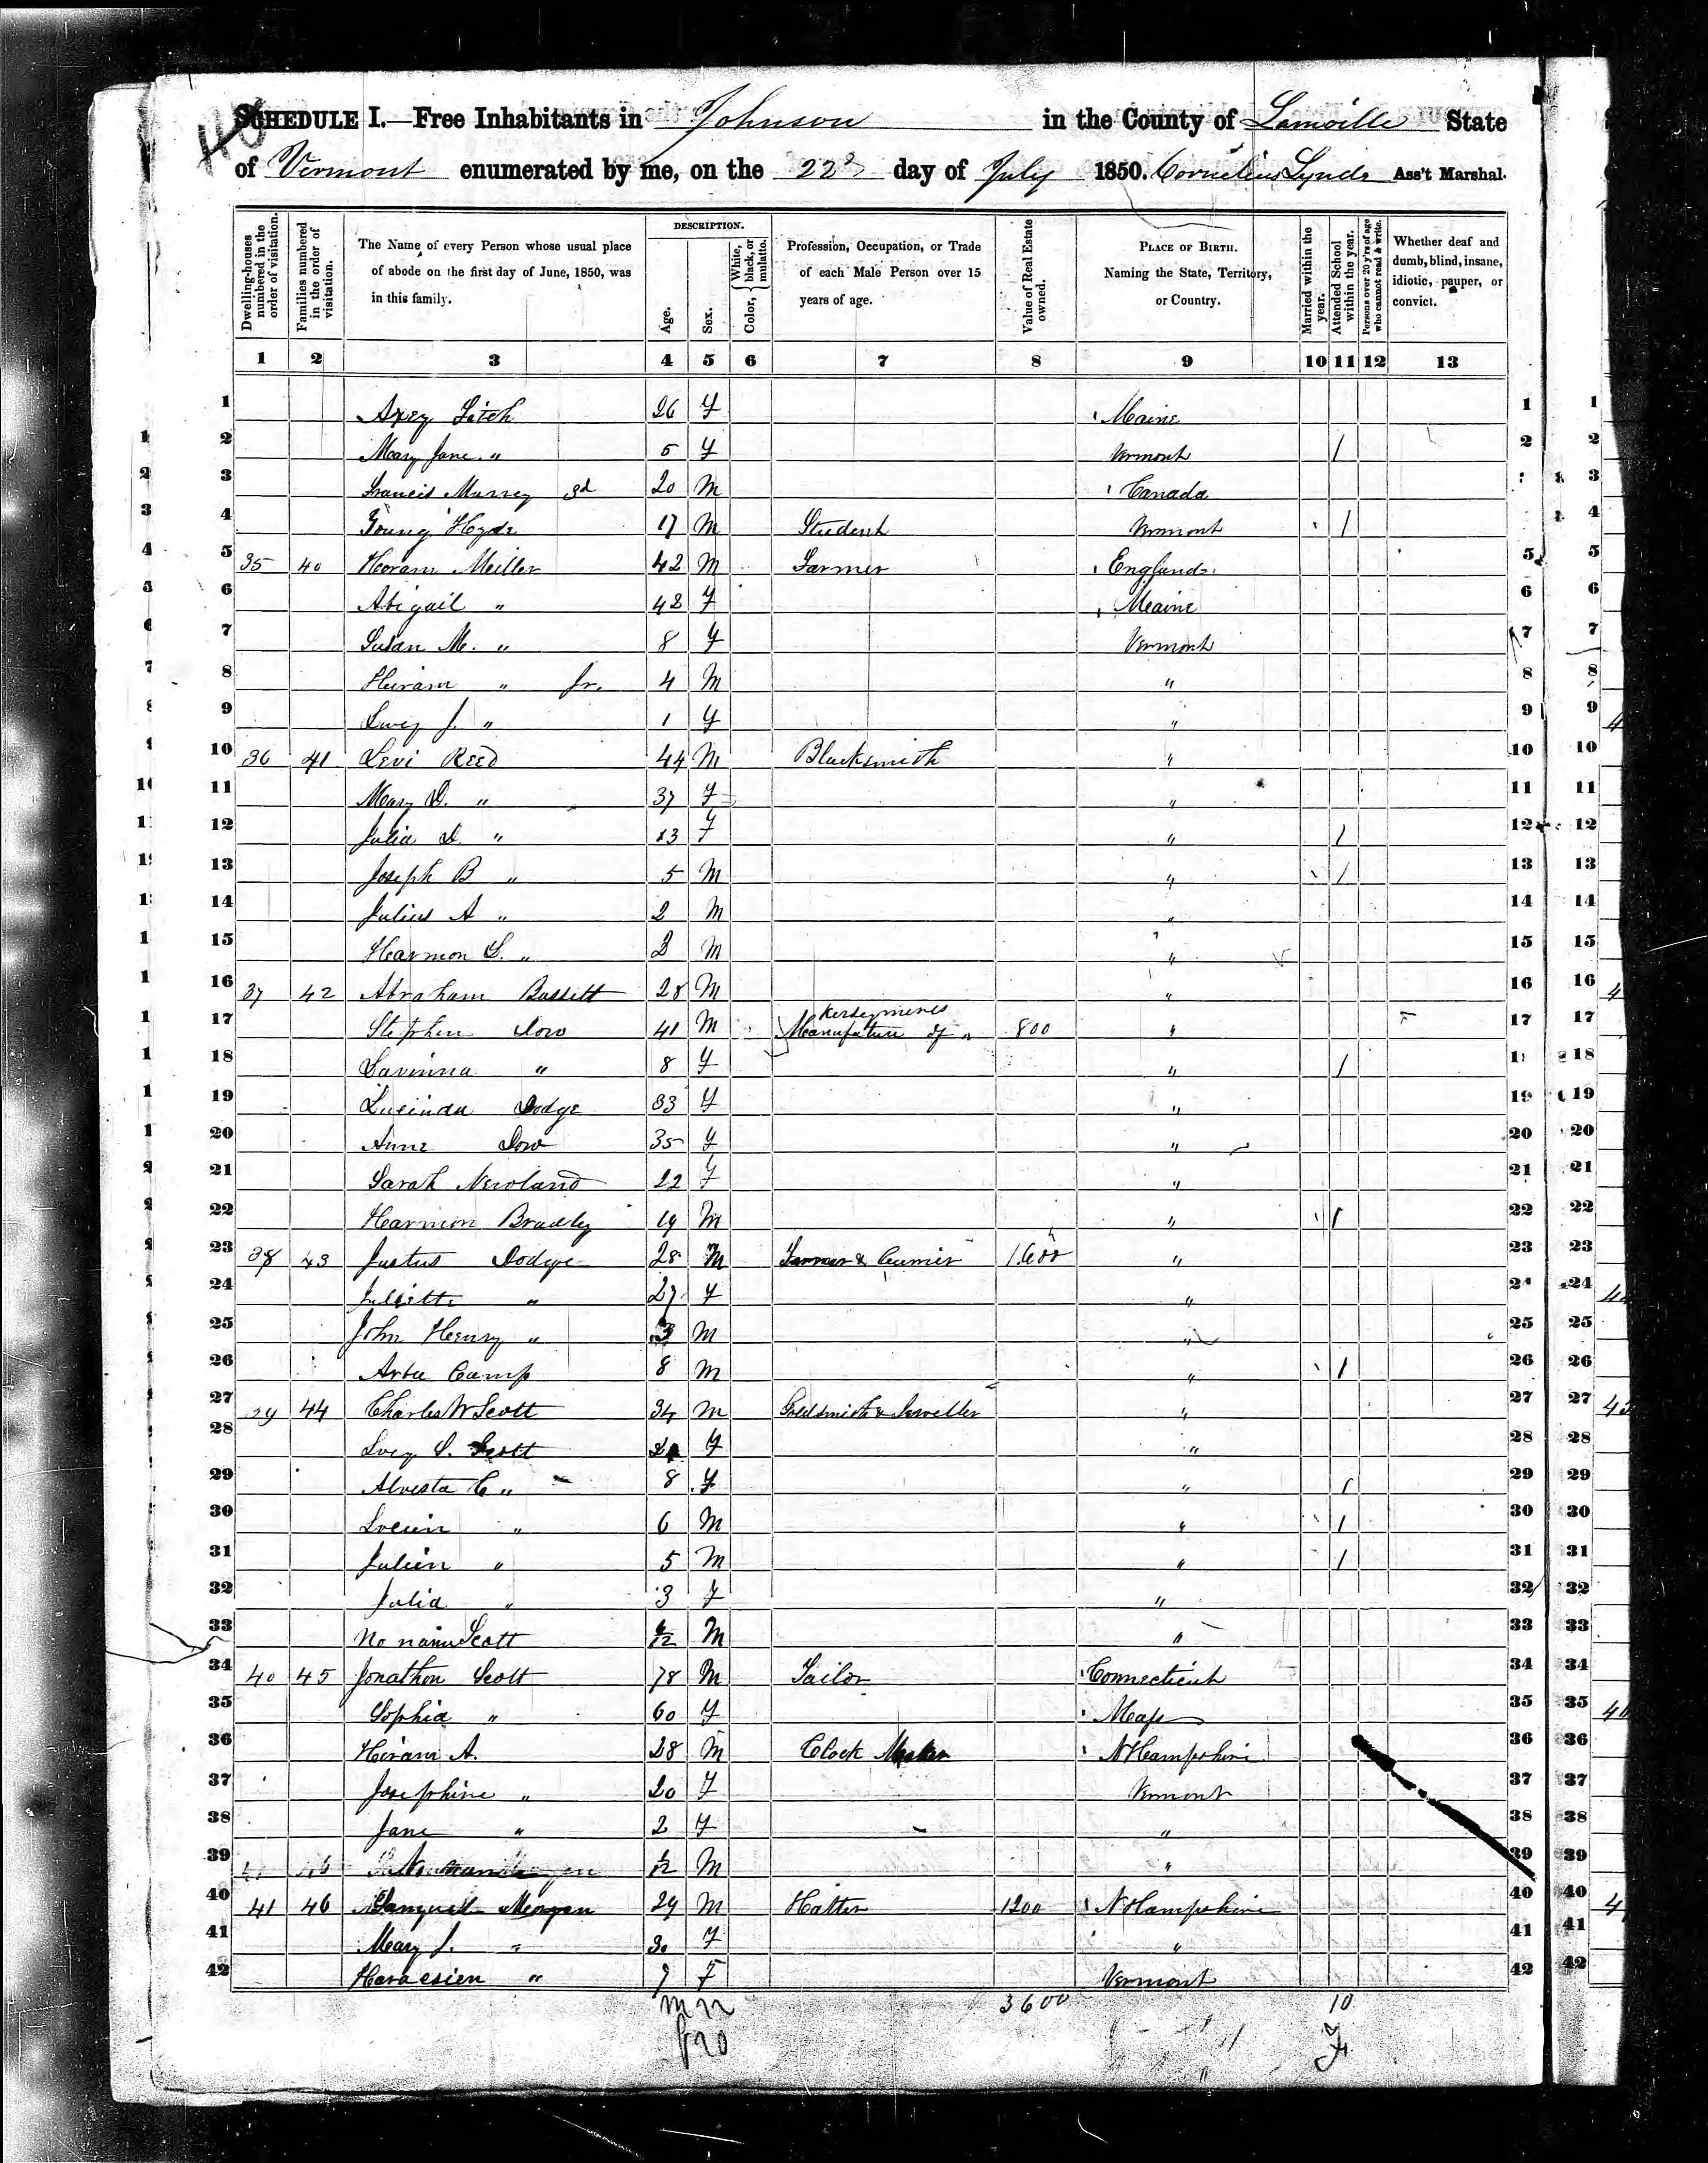 SCHEDULE I.—Free Inhabitants in Johnson in the County of Lamoille State
of Vermont enumerated by me, on the 22d day of July 1850. Cornelius Lynde Ass't Marshal.
Dwelling-houses numbered in the order of visitation.
Families numbered in the order of visitation.
The Name of every Person whose usual place of abode on the first day of June, 1850, was in this family.
DESCRIPTION.
Age.
Sex.
Color, White, black, or mulatto.
Profession, Occupation, or Trade of each Male Person over 15 years of age.
Value of Real Estate owned.
PLACE OF BIRTH. Naming the State, Territory, or Country.
Married within the year.
Attended School within the year.
Persons over 20 y'rs of age who cannot read & write.
Whether deaf and dumb, blind, insane, idiotic, pauper, or convict.
1 2 3 4 5 6 7 8 9 10 11 12 13
1 Fitch 26 F Maine 1
2 Mary Jane " 5 F Vermont / 2
3 Francis Murrey 3d 20 M Canada
4 Young Hyde 17 M Student Vermont /
5 35 40 Horam Meiller 42 M Farmer England 5
6 Abigail " 48 F Maine 6
7 Susan M. " 8 F Vermont 7
8 Huram " Jr. 4 M " 8
9 Lucy J. " 1 F " 9
10 36 41 Levi Reed 44 M Blacksmith " 10
11 Mary D. " 37 F " 11
12 Julia D. " 13 F " / 12
13 Joseph B " 5 M " / 13
14 Julius A " 2 M " 14
15 Harmon L. " 2 M " 15
16 37 42 Abraham Bassett 28 M " 16
17 Stephen Dow 41 M Manufature of Kerseymeres " 800 " 17
18 Lavinna " 8 F " / 18
19 Lucinda Dodge 33 F " 19
20 Anne Dow 35 F " 20
21 Sarah Newland 22 F " 21
22 Harmon Bradley 19 M " / 22
23 38 43 Justus Dodge 28 M Tanner & Currier 1600 " 23
24 Juliette " 27 F " 24
25 John Henry " 3 M " 25
26 Arba Camp 8 M " / 26
27 39 44 Charles W Scott 34 M Goldsmith & Jeweller " 27
28 Lucy S. Scott F " 28
29 Alvesta C " 8 F " / 29
30 Lucien " 6 M " / 30
31 Julien " 5 M " / 31
32 Julia " 3 F " 32
33 No name Scott M " 33
34 40 45 Jonathon Scott 78 M Tailor Connecticut 34
35 Sophia " 60 F Mass 35
36 Hiram A. 28 M Clock Maker N Hampshire 36
37 Josephine " 20 F Vermont 37
38 Jane " 2 F " 38
39 M " 39
40 41 46 Samuel Morgan 29 M Hatter 1200 N Hampshire 40
41 Mary J. " 30 F " 41
42 " 7 F Vermont 42
M 22 3600 10
F 20